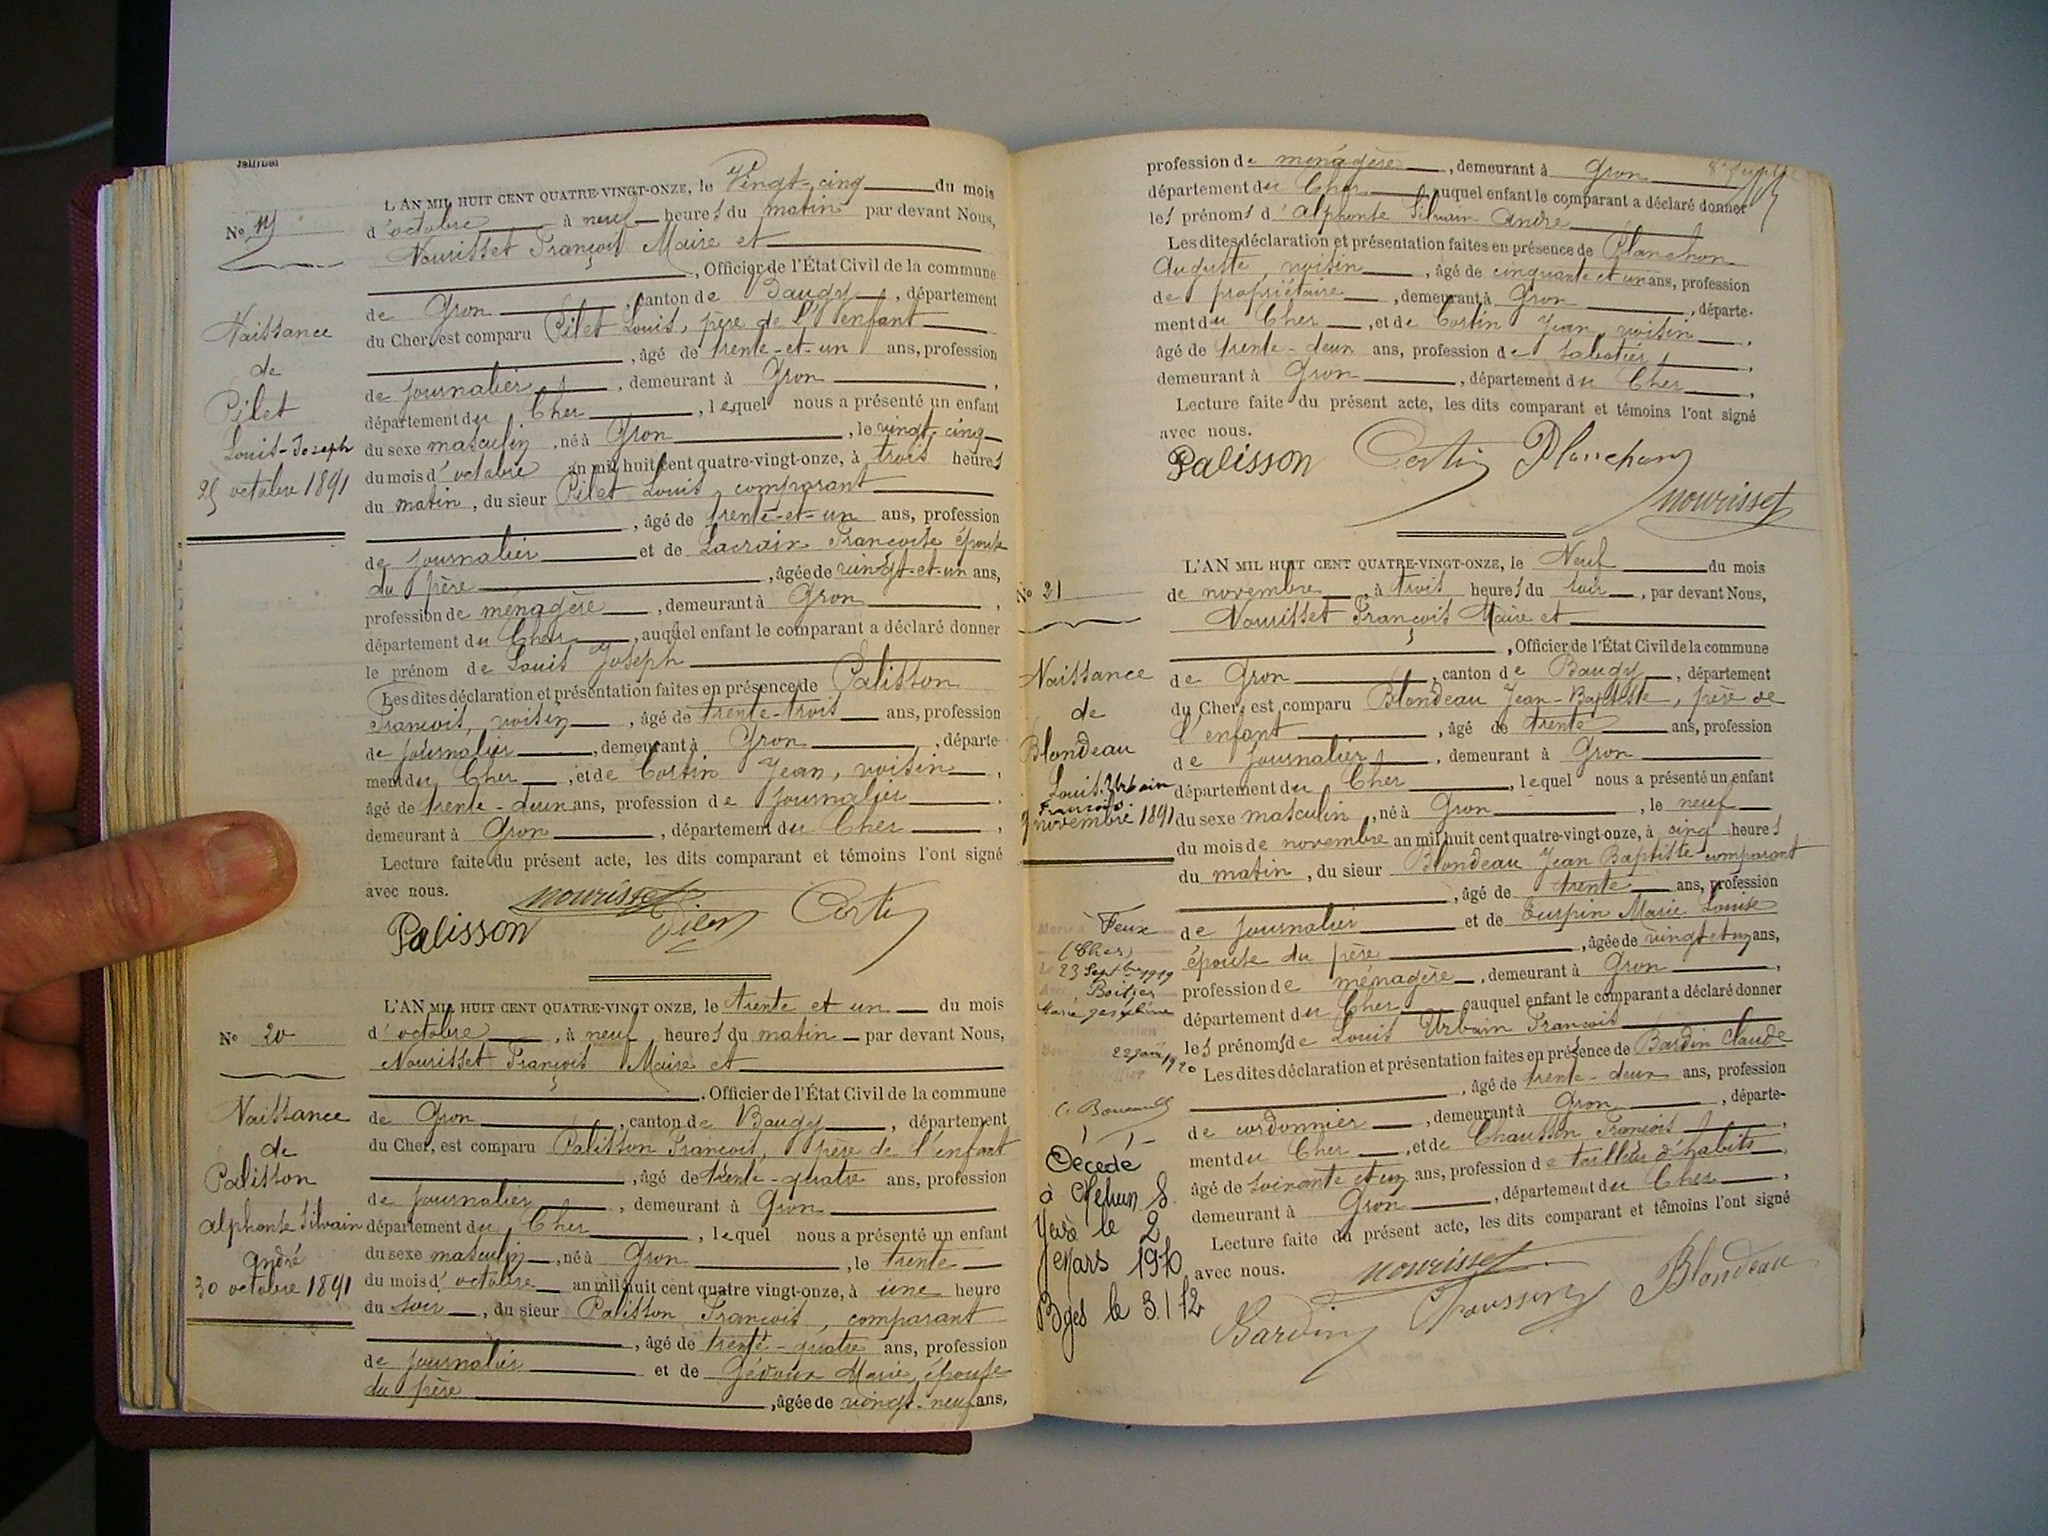 L'AN MIL HUIT CENT QUATRE-VINGT-ONZE, le Vingt-cinq du mois
d'octobre à neuf heures du matin par devant Nous,
Nourisset François Maire et
, Officier de l'État Civil de la commune
de Gron, canton de Baugy, département
du Cher, est comparu Pilet Louis, père de l'enfant
, âgé de trente-et-un ans, profession
de journalier, demeurant à Gron,
département du Cher, lequel nous a présenté un enfant
du sexe masculin, né à Gron, le vingt-cinq
du mois d'octobre an mil huit cent quatre-vingt-onze, à trois heures
du matin, du sieur Pilet Louis, comparant
, âgé de trente-et-un ans, profession
de journalier et de Lacroix Françoise épouse
du père, âgée de vingt-et-un ans,
profession de ménagère, demeurant à Gron,
département du Cher, auquel enfant le comparant a déclaré donner
le prénom de Louis Joseph
Les dites déclaration et présentation faites en présence de Palisson
François, voisin, âgé de trente-trois ans, profession
de journalier, demeurant à Gron, départe-
ment du Cher, et de Cortin Jean, voisin,
âgé de trente-deux ans, profession de journalier,
demeurant à Gron, département du Cher,
Lecture faite du présent acte, les dits comparant et témoins l'ont signé
avec nous.
nourisset
Palisson Pilet Cortin
N° 19
Naissance
de
Pilet
Louis-Joseph
25 octobre 1891
L'AN MIL HUIT CENT QUATRE-VINGT ONZE, le trente et un du mois
d'octobre, à neuf heures du matin par devant Nous,
Nourisset François Maire et
. Officier de l'État Civil de la commune
de Gron, canton de Baugy, département
du Cher, est comparu Palisson François, père de l'enfant
, âgé de trente-quatre ans, profession
de journalier, demeurant à Gron
département du Cher, lequel nous a présenté un enfant
du sexe masculin, né à Gron, le trente
du mois d'octobre an mil huit cent quatre vingt-onze, à une heure
du soir, du sieur Palisson François, comparant
, âgé de trente-quatre ans, profession
de journalier et de Gévoux Marie, épouse
du père, âgée de vingt-neuf ans,
N° 20
Naissance
de
Palisson
alphonse Silvain
andré
30 octobre 1891
profession de ménagère, demeurant à Gron
département du Cher, auquel enfant le comparant a déclaré donner
les prénoms d'alphonse Silvain andré
Les dites déclaration et présentation faites en présence de Planchon
Auguste, voisin, âgé de cinquante et un ans, profession
de propriétaire, demeurant à Gron, départe-
ment du Cher, et de Cortin Jean, voisin,
âgé de trente-deux ans, profession de sabotier,
demeurant à Gron, département du Cher,
Lecture faite du présent acte, les dits comparant et témoins l'ont signé
avec nous.
Palisson Cortin Planchon
nourisset
L'AN MIL HUIT CENT QUATRE-VINGT-ONZE, le Neuf du mois
de novembre, à trois heures du soir, par devant Nous,
Nourisset François Maire et
, Officier de l'État Civil de la commune
de Gron, canton de Baugy, département
du Cher, est comparu Blondeau Jean-Baptiste, père de
l'enfant, âgé de trente ans, profession
de journalier, demeurant à Gron
département du Cher, lequel nous a présenté un enfant
du sexe masculin, né à Gron, le neuf
du mois de novembre an mil huit cent quatre-vingt-onze, à cinq heures
du matin, du sieur Blondeau Jean Baptiste comparant
, âgé de trente ans, profession
de journalier et de Turpin Marie Louise
épouse du père, âgée de vingt et un ans,
profession de ménagère, demeurant à Gron,
département du Cher, auquel enfant le comparant a déclaré donner
les prénoms de Louis Urbain François
Les dites déclaration et présentation faites en présence de Bardin Claude
, âgé de trente-deux ans, profession
de cordonnier, demeurant à Gron, départe-
ment du Cher, et de Chausson François,
âgé de soixante et un ans, profession de tailleur d'habits,
demeurant à Gron, département du Cher,
Lecture faite du présent acte, les dits comparant et témoins l'ont signé
avec nous.
nourisset Blondeau
Bardin Chausson
N° 21
Naissance
de
Blondeau
Louis Urbain
François
9 novembre 1891
Marié à Feux
(Cher)
Le 23 Septbre 1919
Avec Boitier
Marie Joséphine
22 Janv. 1920
Décédé
à Mehun S.
Yèvre le 2
Mars 19
Bges le 3.1.72